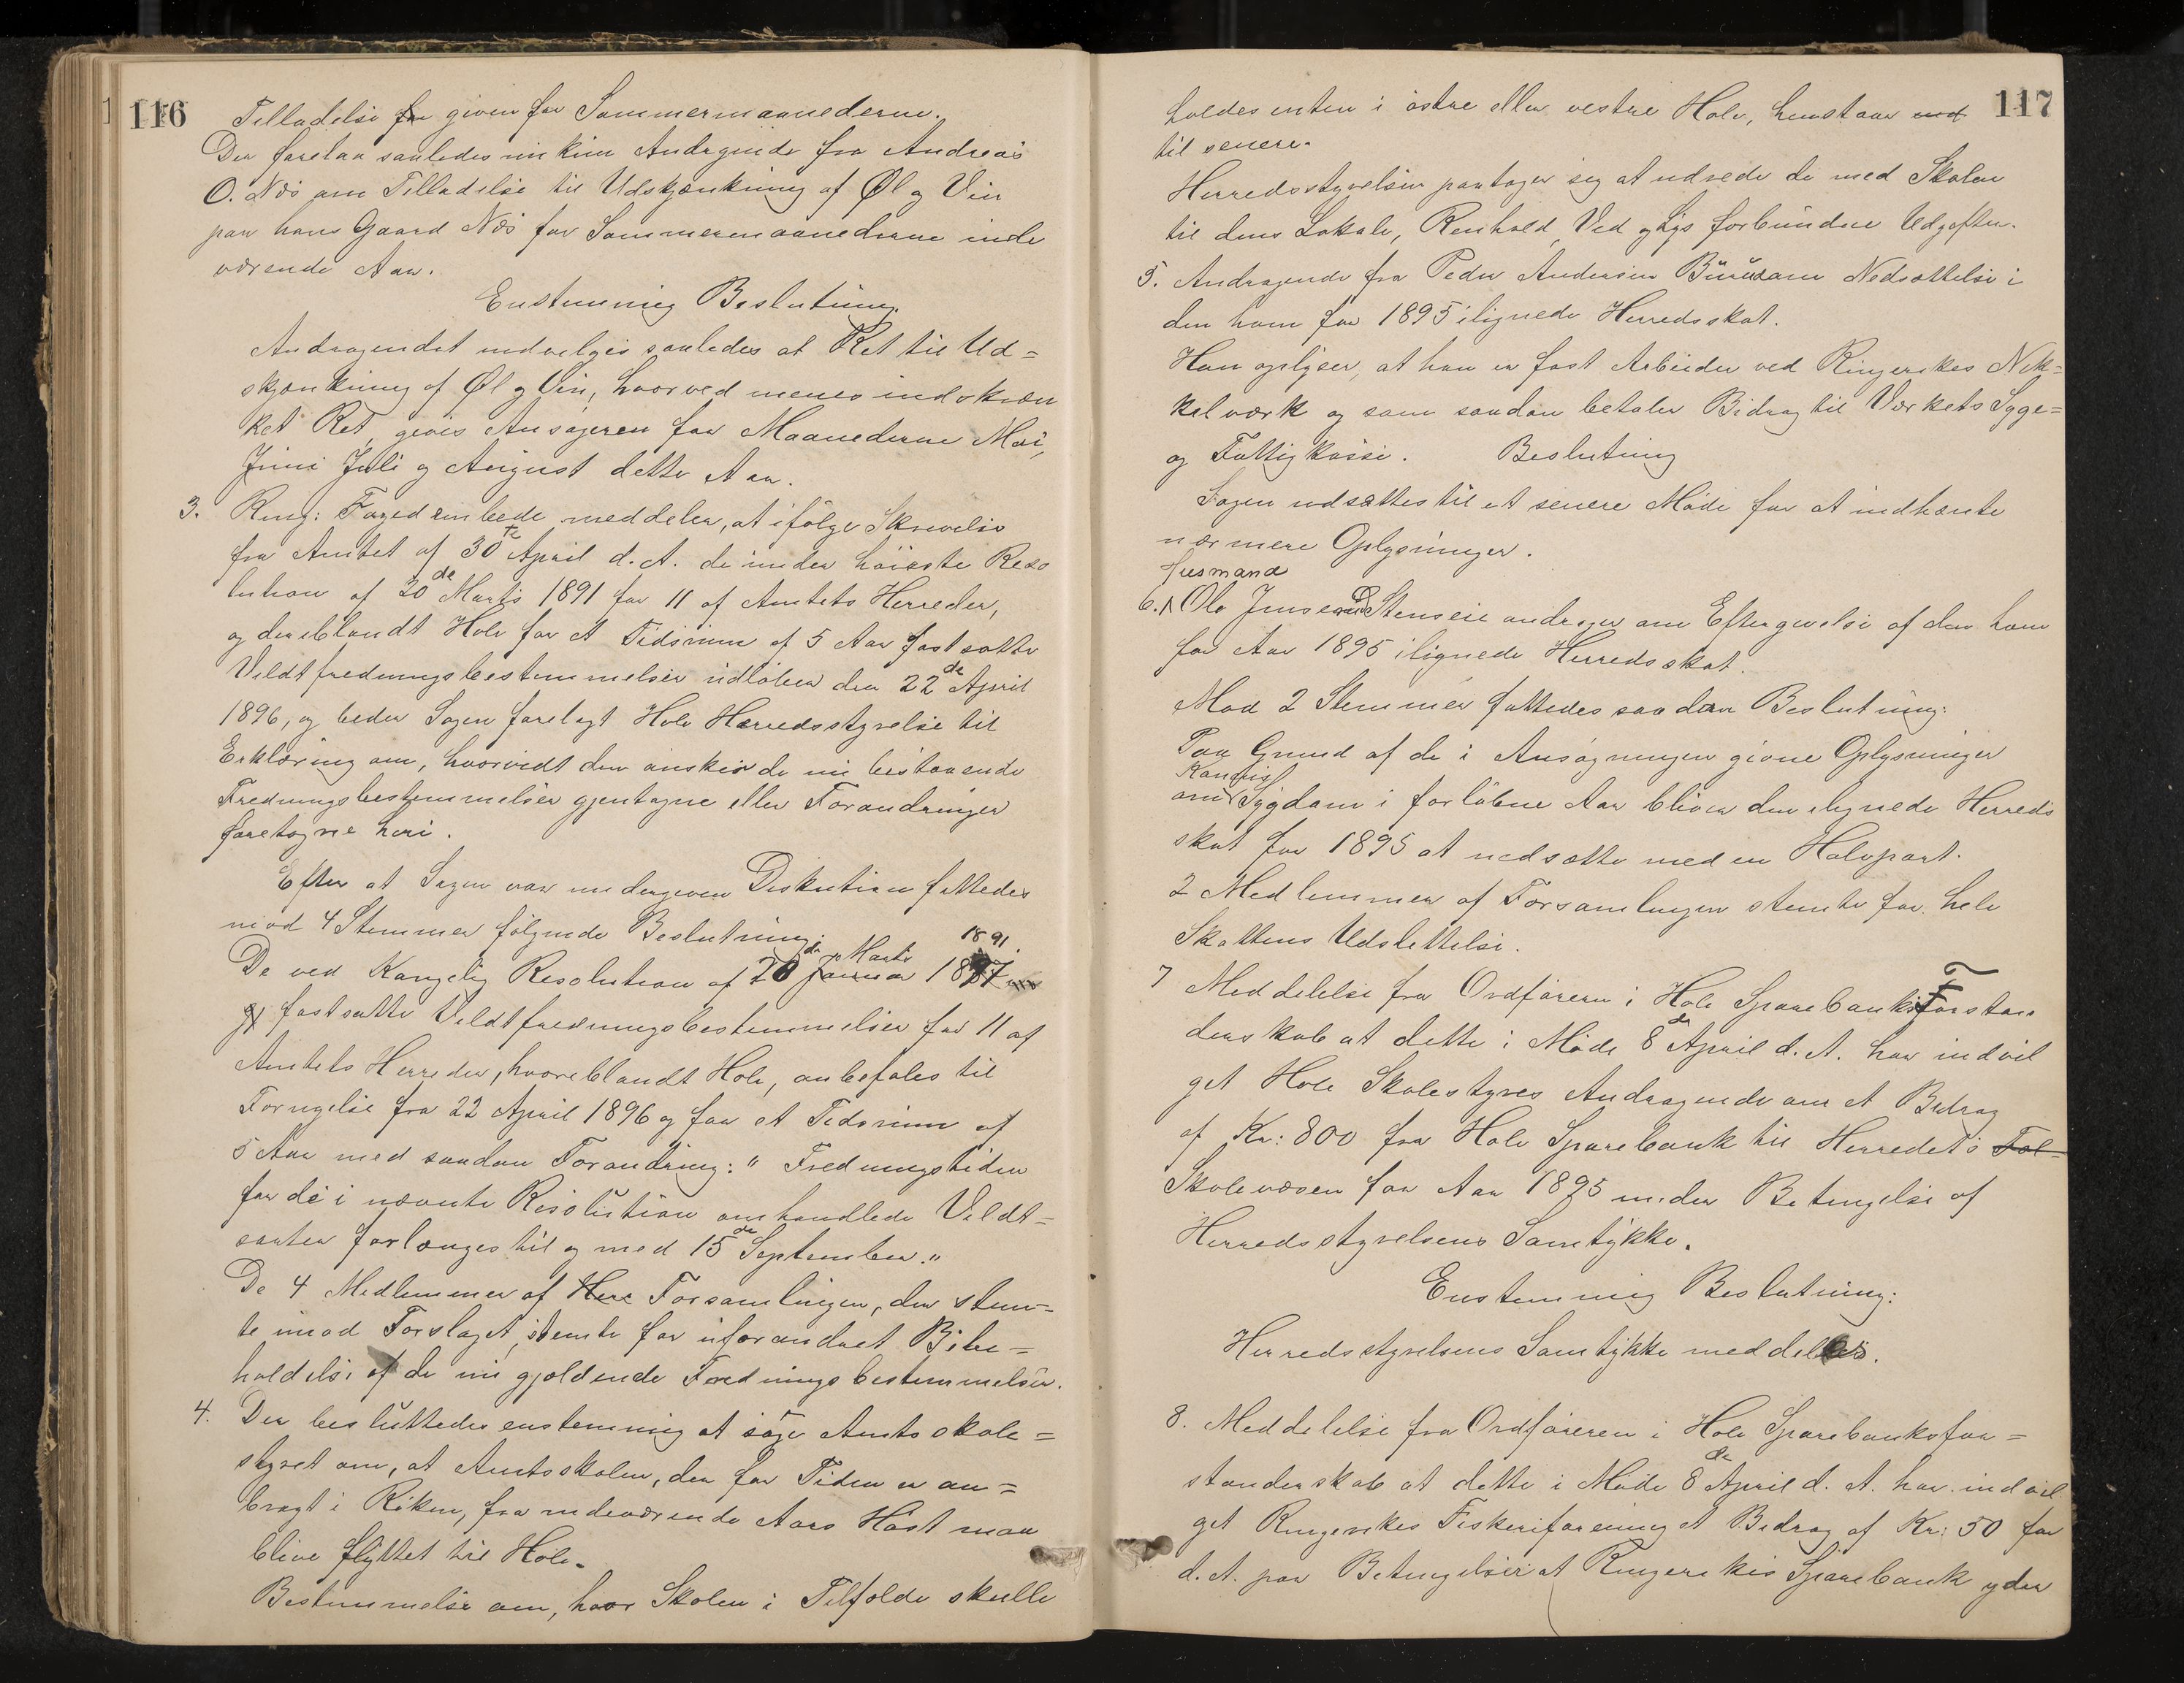 116
Tilladelse given for Sommermaanederne.
Der forelaa saaledes nu kun Andragende fra Andreas
O. Næs om Tilladelse til Udskjænkning af Øl og Vin
paa hans Gaard Næs for Sommermaanederne inde
værende Aar.
Enstemmig Beslutning.
Andragendet indvilges saaledes at Ret til Ud=
skjænkning af Øl og Vin, hvorved menes indskræn
ket Ret, gives Ansøgeren for Maanederne Mai,
Juni Juli og August dette Aar.
3. Ring: Fogedembede meddeler, at ifölge Skrivelse
fra Amtet af 30te April d. A. de under höieste Reso
lution af 20de Marts 1891 for 11 af Amtets Herreder,
og deriblandt Hole for et Tidsrum af 5 Aar fastsatte
Vildtfredningsbestemmelser udlöber den 22de April
1896, og beder Sagen forelagt Hole Herredsstyrelse til
Erklæring om, hvorvidt den önsker de nu bestaaende
Fredningsbestemmelser gjentagne eller Forandringer
foretagne heri.
Efter at Sagen var undergiven Diskution fattedes
mod 4 Stemmer fölgende Beslutning:
De ved Kongelig Resolution af 20de Marts 1891
fastsatte Vildtfredningsbestemmelser for 11 af
Amtets Herreder, hvoriblandt Hole, anbefales til
Fornyelse fra 22 April 1896 og for et Tidsrum af
5 Aar med saadan Forandring: "Fredningstiden
for de i nævnte Resolution omhandlede Vildt=
sorter forlænges til og med 15de September."
De 4 Medlemmer af Forsamlingen, der stem=
te imod Forslaget, stemte for uforandret Bibe=
holdelse af de nu gjældende Fredningsbestemmelser.
4. Der besluttedes enstemmig at söge Amtsskole=
styret om, at Amtsskolen, der for Tiden er an=
bragt i Röken, fra indeværende Aars Höst maa
blive flyttet til Hole.
Bestemmelse om, hvor Skolen i Tilfælde skulle
117
holdes enten i östre eller vestre Hole, henstaar
til senere.
Herredsstyrelsen paatager sig at udrede de med Skolen
til dens Lokale, Renhold, Ved og Lys forbundne Udgifter.
5. Andragende fra Peder Andersen om Nedsættelse i
den ham for 1895 ilignede Herredsskat.
Han oplyser, at han er fast Arbeider ved Ringerikes Nik=
kelværk og som saadan betaler Bidrag til Værkets Syge=
og Fattigkasse. Beslutning
Sagen udsættes til et senere Möde for at indhente
nærmere Oplysninger.
Husmand
6. Ole Jensen Stenseie andrager om Eftergivelse af den ham
for Aar 1895 ilignede Herredsskat.
Mod 2 Stemmer fattedes saadan Beslutning:
Paa Grund af de i Ansögningen givne Oplysninger
om Sygdom i forløbne Aar bliver den ilignede Herreds
skat for 1895 at nedsætte med en Halvpart.
2 Medlemmer af Forsamlingen stemte for hele
Skattens Udslettelse.
7 Meddelelse fra Ordföreren i Hole Sparebanks Forstan
derskab at dette i Möde 8de April d. A. har indvil
get Hole Skolestyres Andragende om et Bidrag
af Kr: 800 fra Hole Sparebank til Herredets
Skolevæsen for Aar 1895 under Betingelse af
Herredsstyrelsens Samtykke.
Enstemmig Beslutning:
Herredsstyrelsens Samtykke meddeles.
8. Meddelelse fra Ordföreren i Hole Sparebanksfor=
standerskab at dette i Möde 8de April d. A. har indvil
get Ringerikes Fiskeriforening et Bidrag af Kr: 50 for
d. A. paa Betingelse at Ringerikes Sparebank yder